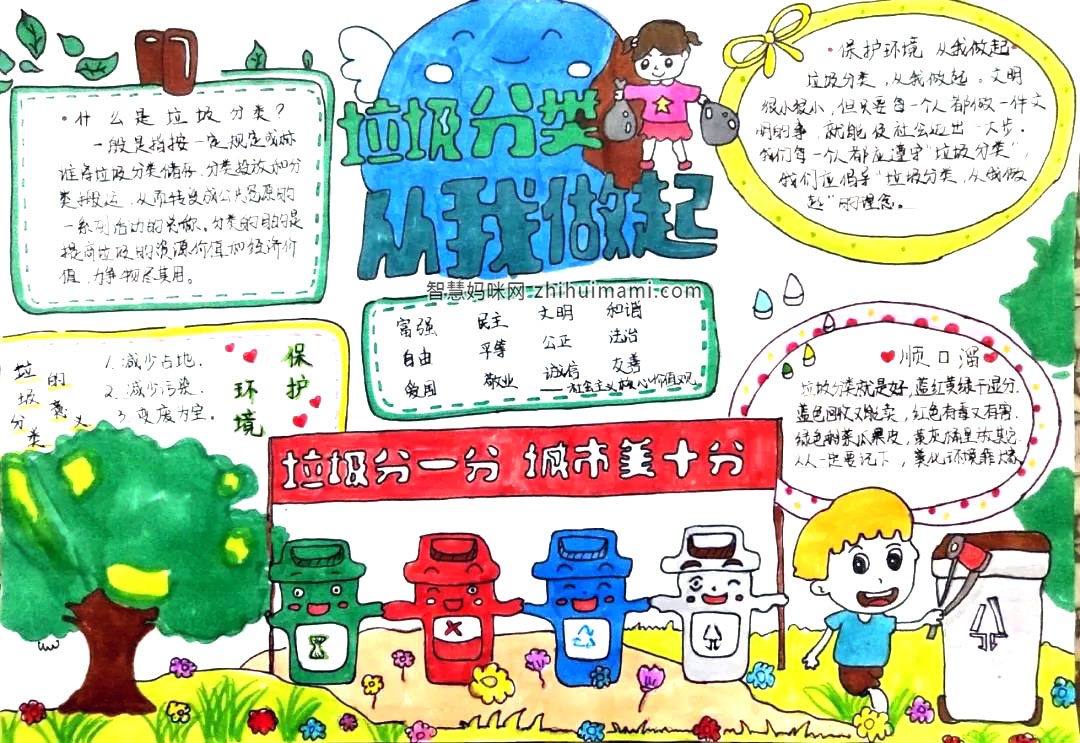 垃圾分类
从我做起
智慧妈咪网-zhihuimami.com
·什么是垃圾分类?
一般是指按一定规定或标
准将垃圾分类储存、分类投放和分
类搬运,从而转变成公共资源的
一系列活动的总称。分类的目的是
提高垃圾的资源价值和经济价
值,力争物尽其用。
·保护环境 从我做起·
垃圾分类,从我做起。文明
很小很小,但只要每一个人都做一件文
明的事,就能使社会迈出一大步。
我们每一个人都应遵守“垃圾分类”,
我们应倡导“垃圾分类,从我做
起”的理念。
富强 民主 文明 和谐
自由 平等 公正 法治
爱国 敬业 诚信 友善
——社会主义核心价值观
垃圾分类的意义
1.减少占地.
2.减少污染.
3.变废为宝.
保护
环境
顺口溜
垃圾分类就是好,蓝红黄绿千里分.
蓝色回收又能卖,红色有毒又有害.
绿色剩菜瓜果皮,黄灰桶里放其它.
人人一定要记下,美化环境靠大家.
垃圾分一分 城市美十分